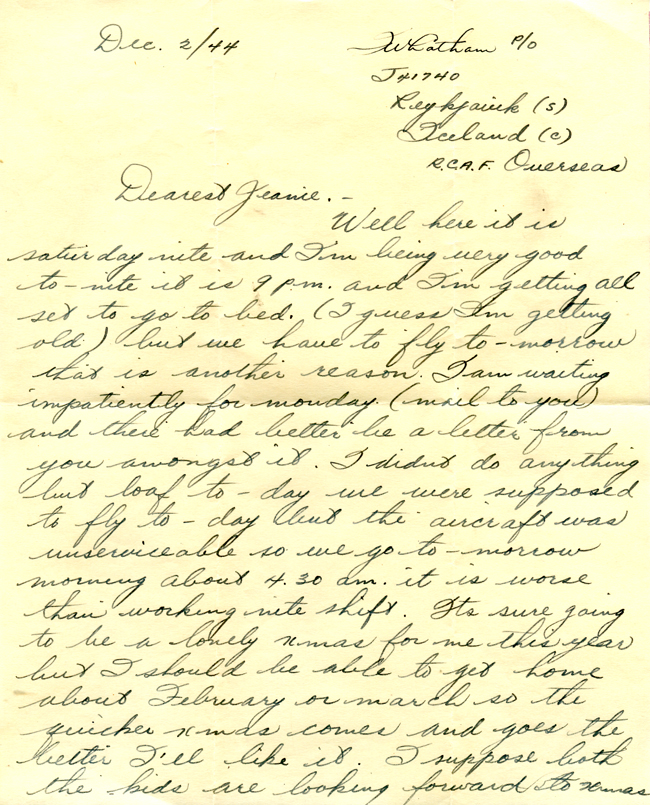 Dec. 2/44
Whatham P/O
J41740
Reykjavik (S)
Iceland (C)
R.C.A.F. Overseas
Dearest Jeanie. -
Well here it is
saturday nite and I'm being very good
to-nite it is 9 pm. and I'm getting all
set to go to bed. (I guess I'm getting
old) but we have to fly to-morrow
that is another reason. I am waiting
impatiently for monday. (mail to you)
and there had better be a letter from
you amongst it. I didn't do anything
but loaf to-day we were supposed
to fly to-day but the aircraft was
unserviceable so we go to-morrow
morning about 4.30 am. it is worse
than working nite shift. Its sure going
to be a lonely xmas for me this year
but I should be able to get home
about February or march so the
quicker xmas comes and goes the
better I'll like it. I suppose both
the kids are looking forward to xmas